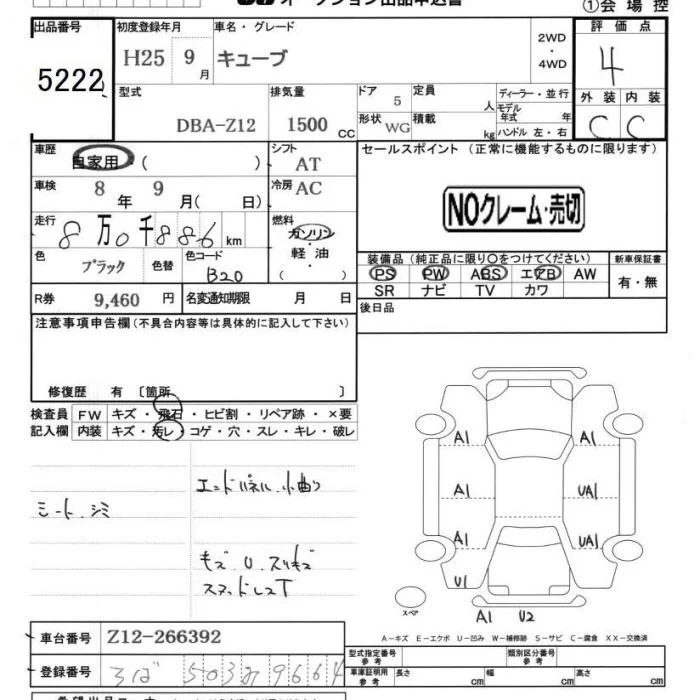 オークション出品申込書
①会場控
出品番号 初度登録年月 車名・グレード 2WD・4WD 評価点
5222 H25 9月 キューブ 4
型式 排気量 ドア 5 定員 人 ディーラー・並行 外装 内装
DBA-Z12 1500 CC 形状 WG 積載 kg モデル年式 年 C C
ハンドル 左・右
車歴 自家用・( ) シフト AT セールスポイント (正常に機能するものに限ります)
車検 8年 9月( 日) 冷房 AC
NOクレーム・売切
走行 8万0千886km 燃料 ガソリン・軽油・( )
色 ブラック 色替 色コード B20
装備品 (純正品に限り○をつけてください) 新車保証書
PS PW ABS エアB AW 有・無
SR ナビ TV カワ
R券 9,460 円 名変通知期限 月 日
後日品
注意事項申告欄(不具合内容等は具体的に記入して下さい)
修復歴 有 〔箇所 〕
検査員 FW キズ・飛石・ヒビ割・リペア跡・×要
記入欄 内装 キズ・汚レ・コゲ・穴・スレ・キレ・破レ
エンドパネル小曲り
シート、シミ
キズ、U、スリキズ
A1 A1
A1 UA1
A1 UA1
U1
スペア
A1 U2
A-キズ E-エクボ U-凹み W-補修跡 S-サビ C-腐食 XX-交換済
車台番号 Z12-266392
型式指定番号 参考 類別区分番号 参考
登録番号 503 9664
車庫証明用 参考 長さ cm 幅 cm 高さ cm